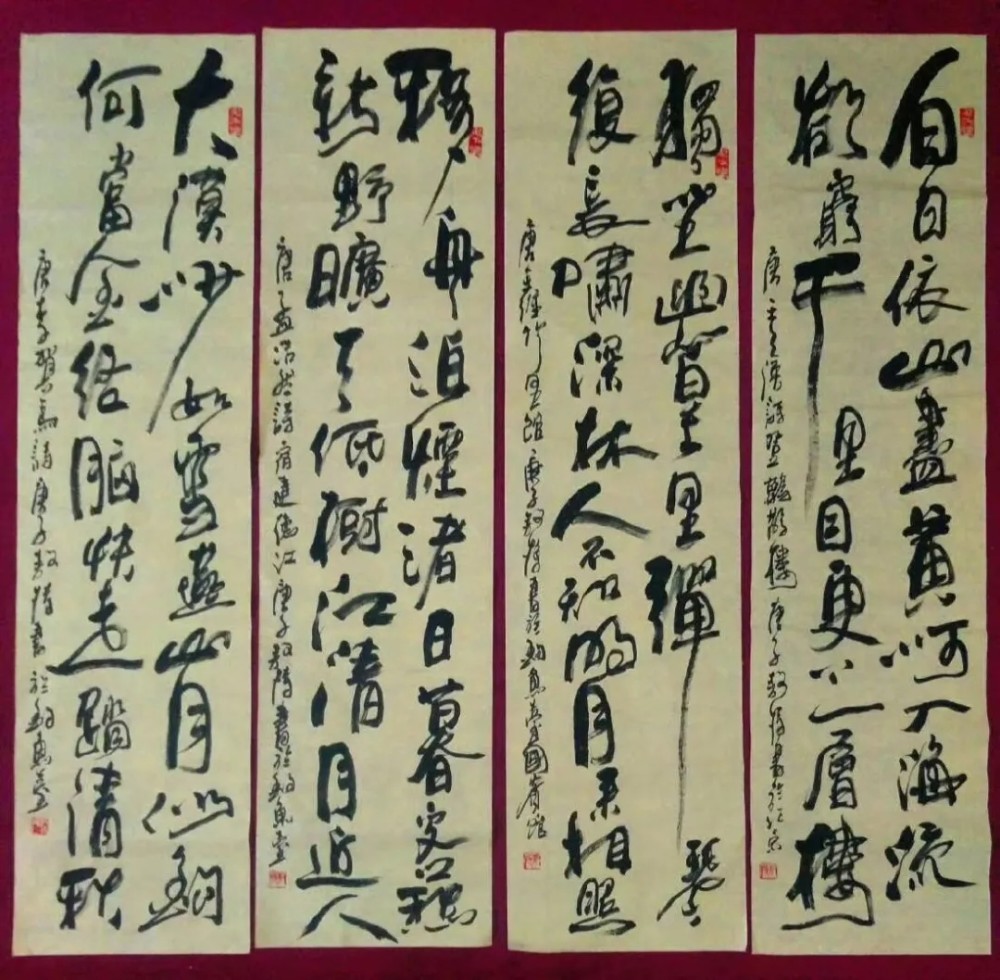 白日依山盡黃河入海流
欲窮千里目更上一層樓
唐王之渙詩登鸛鵲樓 庚子書於北京
獨坐幽篁里彈琴
復長嘯深林人不知明月來相照
唐王維竹里館 庚子書於釣魚臺國賓館
移舟泊煙渚日暮客愁
新野曠天低樹江清月近人
唐孟浩然詩宿建德江 庚子書於釣魚臺
大漠沙如雪燕山月似鉤
何當金絡腦快走踏清秋
唐李賀馬詩庚子書於釣魚臺